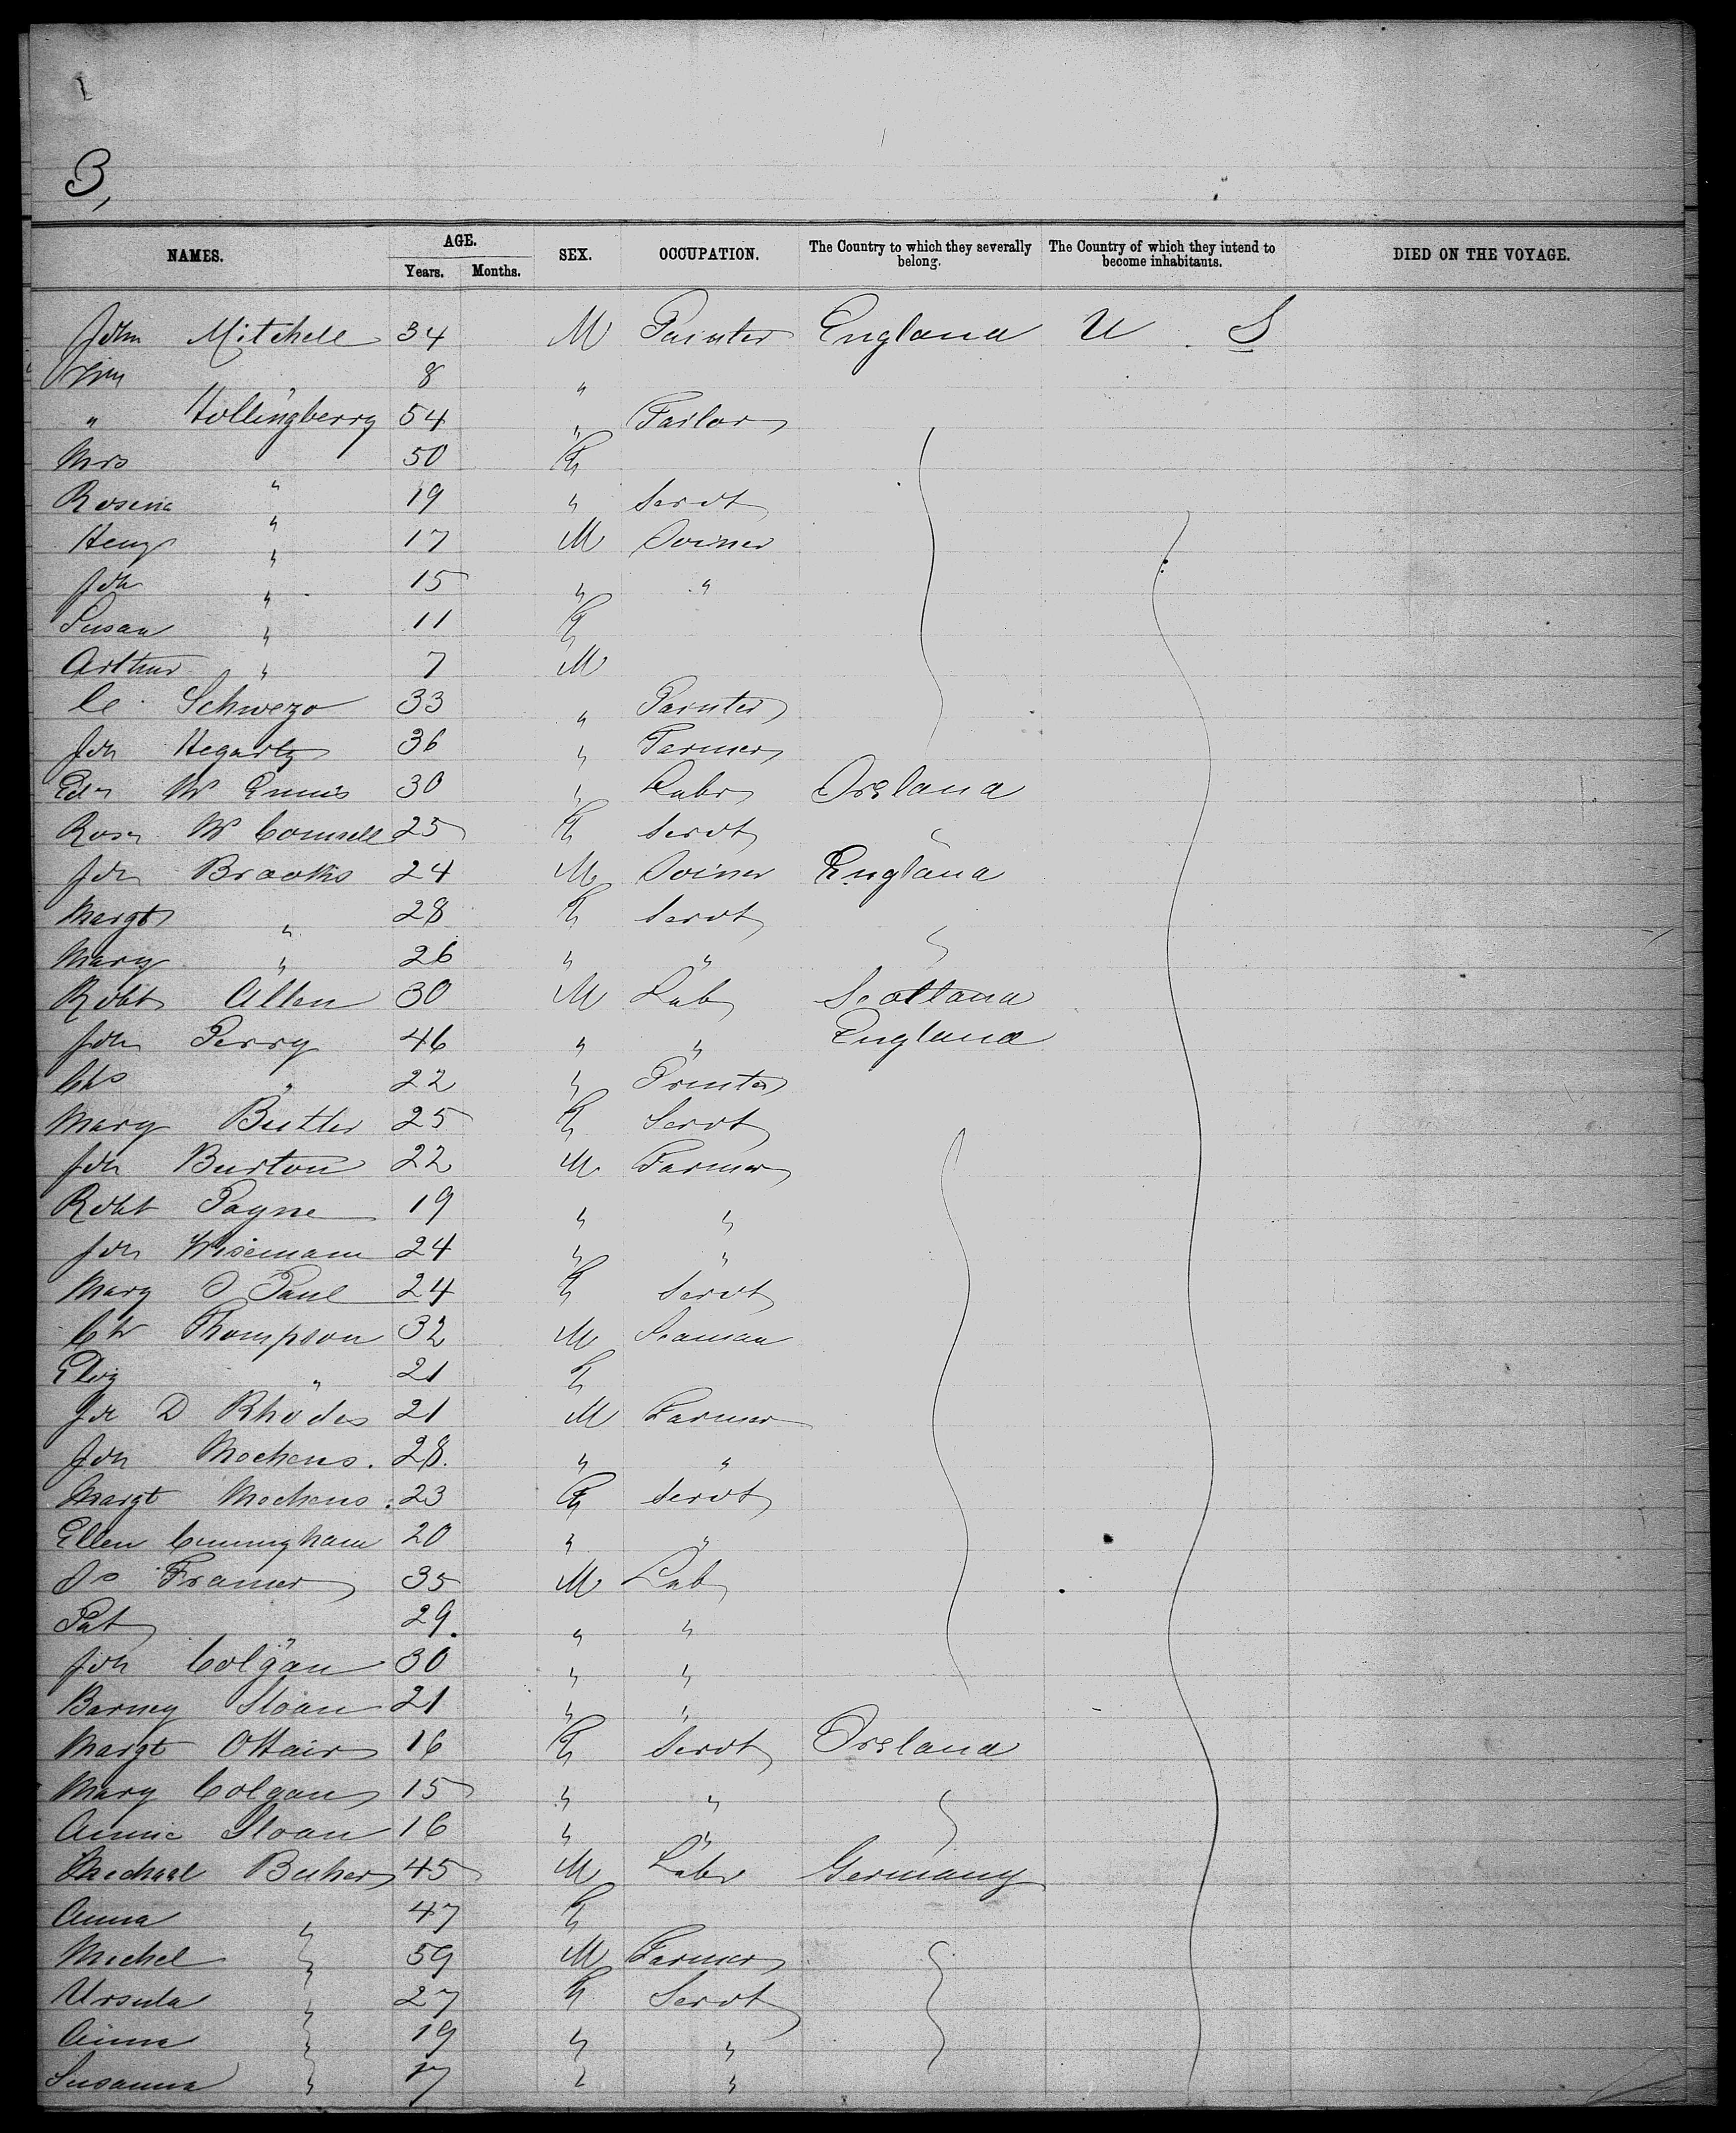 3,
NAMES. AGE. Years. Months. SEX. OCCUPATION. The Country to which they severally belong. The Country of which they intend to become inhabitants. DIED ON THE VOYAGE.
John Mitchell 34 M Painter England U S
Wm " 8 "
" Hollingberry 54 " Tailor
Mrs " 50 F
Rosina " 19 " Servt
Heny " 17 M Joiner
Jon " 15 " "
Susan " 11 F
Arthur " 7 M
33 " Painter
Jon Hegarty 36 " Farmer
30 " Labr Ireland
Rose 25 F Servt "
Jon Brooks 24 M Joiner England
Margt " 28 F Servt
Mary " 26 " " "
Robt Allen 30 M Lab Scotland
Jon Perry 46 " " England
Chs " 22 " Printer
Mary Butler 25 F Servt
Jon Burton 22 M Farmer
Robt Payne 19 " "
Jon Wiseman 24 " "
Mary J Paul 24 F Servt
Thompson 32 M Seaman
Eliz " 21 F
D Rhodes 21 M Farmer
Jon 28. " "
Margt 23 F Servt
Ellen Cunningham 20 " "
Framer 35 M Lab
Pat " 29. " "
Jon Colgan 30 " "
Barney Sloan 21 " "
Margt OHair 16 F Servt Ireland
Mary Colgan 15 " "
Annie Sloan 16 " "
Michael 45 M Labr Germany
Anna " 47 F
Michel " 59 M Farmer
Ursula " 27 F Servt
Anna " 19 " "
Susanna " 17 " "